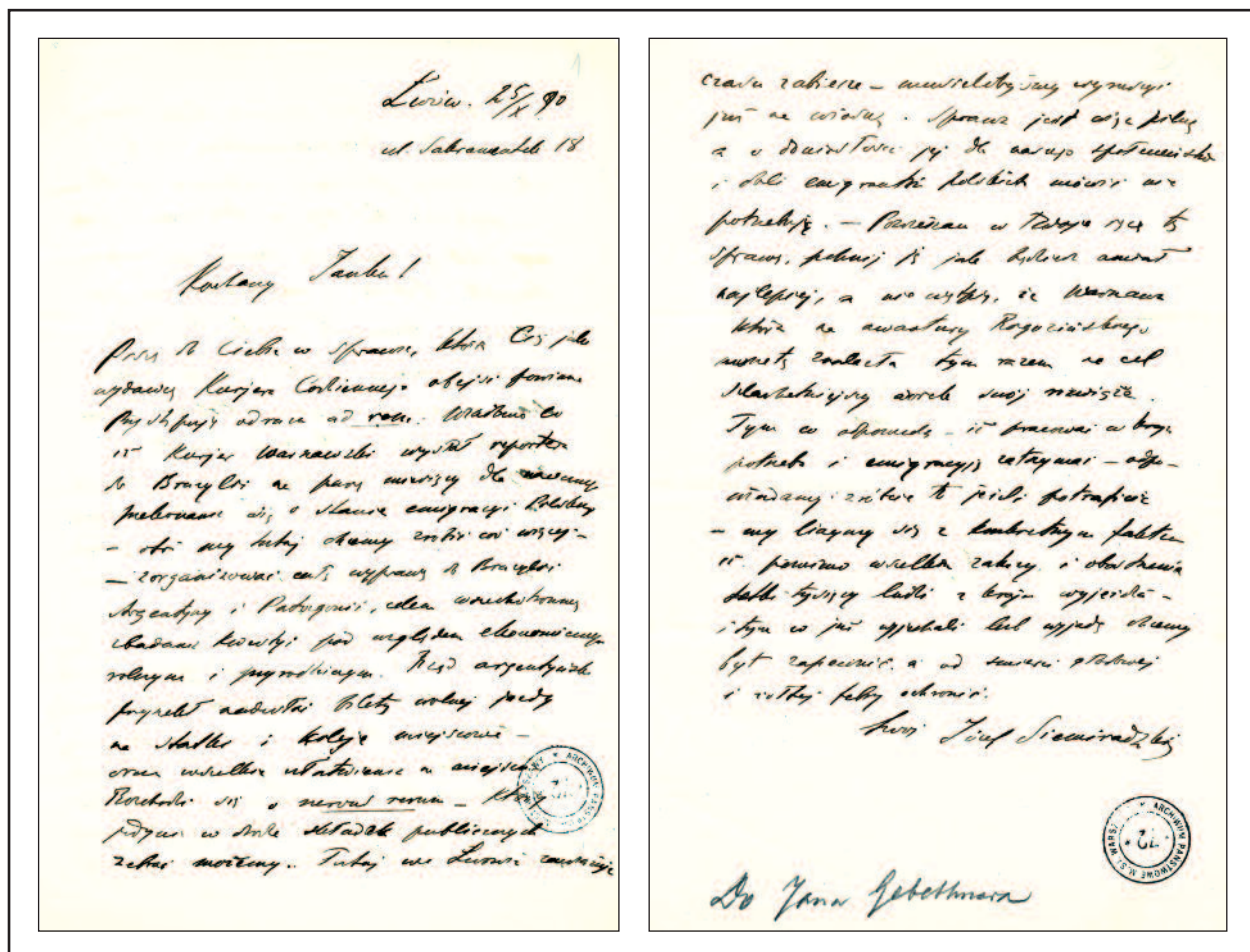 1
Lwów. 25/X 90
ul. 18
Kochany Janku!
Piszę do Ciebie w sprawie, która Cię jako
wydawcę Kurjera Codziennego obejść powinna
Przystępuję odrazu ad rem. Wiadomo Ci
iż Kurjer Warszawski wysłał reportera
do Brazylii na parę miesięcy dla
przekonania się o stanie emigracyi Polskiej
– otóż my tutaj chcemy zrobić coś więcej –
– zorganizować całą wyprawę do Brazylii
Argentyny i Patagonii, celem wszechstronnego
zbadania kwestyi pod względem ekonomicznym
rolnym i przyrodniczym. Rząd argentyński
przyrzekł nadesłać bilety wolnej jazdy
na statki i koleje miejscowe –
oraz wszelkie ułatwienia na miejscu
Rozchodzi się o nervus rerum – który
jedynie w drodze składek publicznych
zebrać możemy. Tutaj we Lwowie
czasu zabierze –
już na wiosnę. Sprawa jest więc pilną
a o doniosłości jej dla naszego społeczeństwa
i doli emigrantów polskich mówić nie
potrzebuję. – Powierzam w Twoje ręce tę
sprawę, pokieruj ją jak będziesz uważał
najlepiej, a nie wątpię, że Warszawa
która na awantury Rogozińskiego
monetę znalazła tym razem na cel
szlachetniejszy worek swój rozwiąże.
Tym co odpowiedzą – iż pracować w kraju
potrzeba i emigracyję zatrzymać – odpo-
wiadamy: zróbcie to jeśli potraficie
– my liczymy się z konkretnym faktem
iż pomimo wszelkie zakazy i obostrzenia
setki tysięcy ludzi z kraju wyjeżdża –
i tym co już wyjechali lub wyjadą chcemy
byt zapewnić a od śmierci głodowej
i żółtej febry ochronić.
Twój Józef Siemiradzki
ARCHIWUM PAŃSTWOWE M. ST. WARSZAWY
72
Do Jana Gebethnera